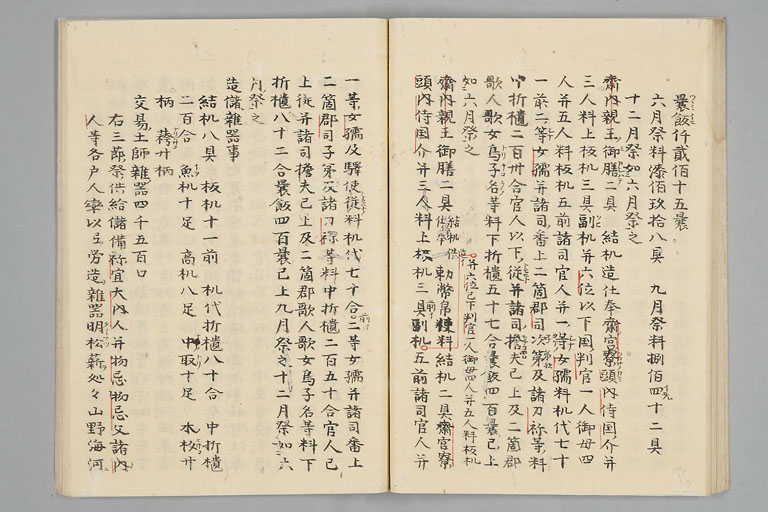 曩飯仟貳佰十五曩
六月祭料漆佰玖拾八具 九月祭料捌佰四十二具
十二月祭如六月祭之
齋内親王御膳二具 結机造仕奉齋宮寮頭内侍国介并
三人料上板机三具副机并六位以下国判官一人御毋四
人并五人料板机五前諸司官人并一等女孺料机代七十
一前二等女孺并諸司番上二箇郡司次第及諸刀祢等料
中折櫃二百卅合官人以下従并諸司擔夫已上及二箇郡
歌人歌女鳥子名等料下折櫃五十七合曩飯四百曩已上
如六月祭之
齋内親王御膳二具結机供仕奉勅幣帛使料結机二具齋宮寮
頭内侍国介并三人料上板机三具副机五前諸司官人并
并六位已下判官一人御毋四人并五人料板机
一等女孺及驛使従料机代七十合二等女孺并諸司番上
二箇郡司子弟及諸刀祢等料中折櫃二百五十合官人已
上従并諸司擔夫已上及二箇郡歌人歌女鳥子名等料下
折櫃八十二合曩飯四百曩已上九月祭之十二月祭如六
月祭之
造儲雜器事
結机八具 板机十一前 机代折櫃八十合 中折櫃
二百合 魚机十足 高机八足 中取十足 本枚廾
柄 廾柄
交易土師雜器四千五百口
右三節祭供給儲備祢宜大内人并物忌物忌父諸内
人等各戸人率以互労造雜器明松薪処々山野海河